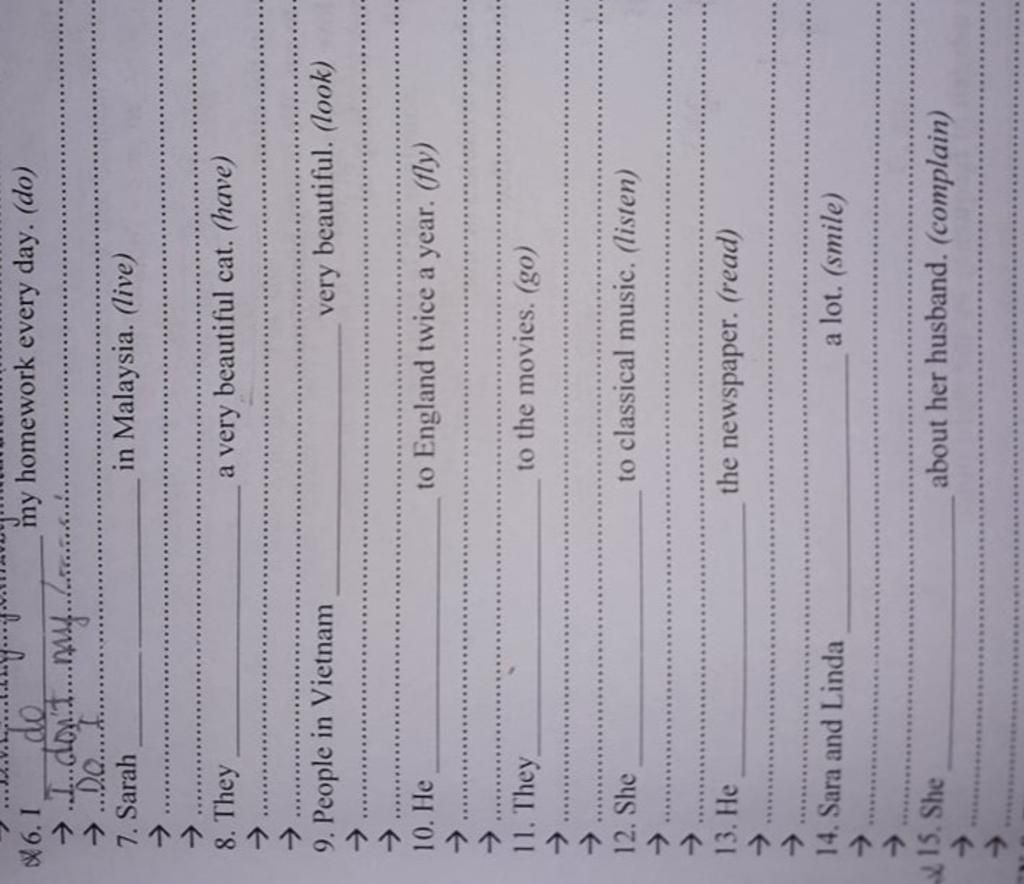 6. I do my homework every day. (do)
→ I don't my /
→ Do I
7. Sarah in Malaysia. (live)
→
→
8. They a very beautiful cat. (have)
→
→
9. People in Vietnam very beautiful. (look)
→
→
10. He to England twice a year. (fly)
→
→
11. They to the movies. (go)
→
→
12. She to classical music. (listen)
→
→
13. He the newspaper. (read)
→
→
14. Sara and Linda a lot. (smile)
→
→
15. She about her husband. (complain)
→
→